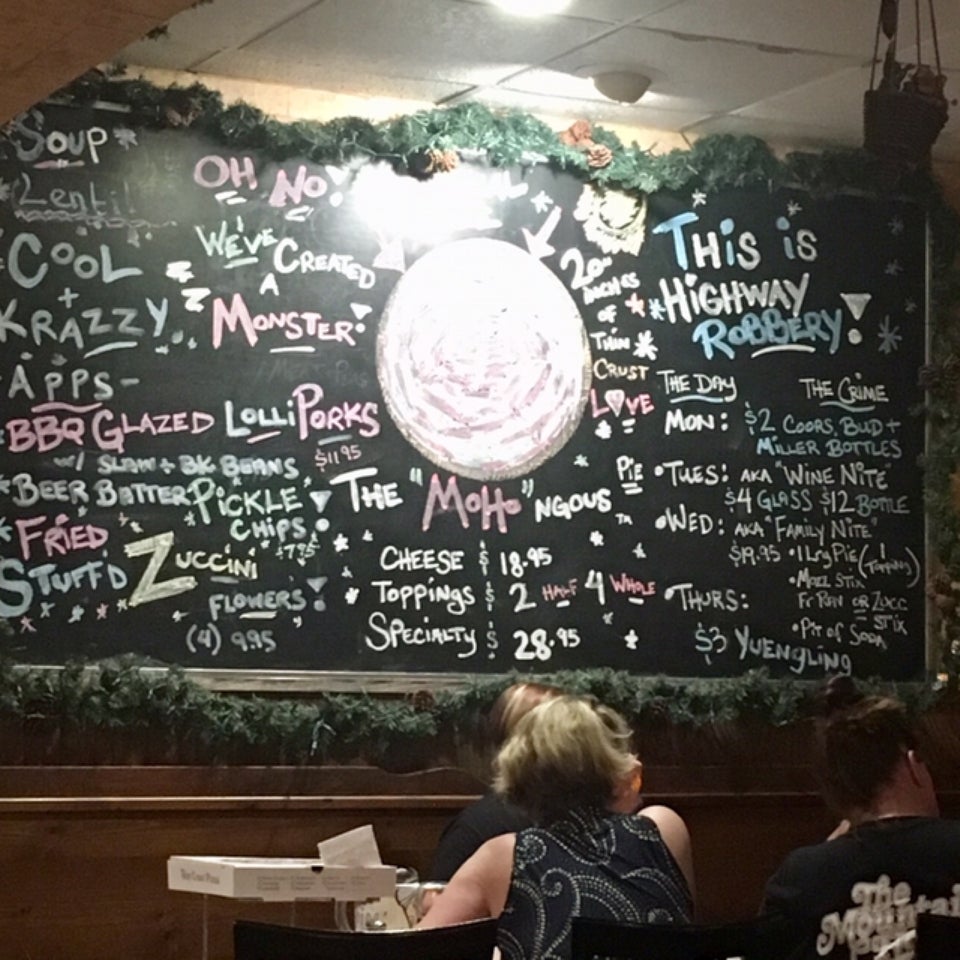 Soup
Lentil
Cool
+
Krazzy
Apps-
BBQ Glazed LolliPorks
w/ Slaw + BK Beans $11.95
Beer Batter Pickle
Chips
$7.95
Fried
Stuff'd Zuccini
Flowers!
(4) 9.95
Oh No!
We've Created
A
Monster!
20"
inches
of
Thin
Crust
Love
Pie
The "MoHo"ngous TM
Cheese $ 18.95
Toppings $ 2 Half 4 Whole
Specialty $ 28.95
This is
Highway
Robbery!
The Day The Crime
Mon: $2 Coors, Bud +
Miller Bottles
Tues: AKA "Wine Nite"
$4 Glass $12 Bottle
Wed: AKA "Family Nite"
$19.95 • 1 Lrg Pie (1 Topping)
• Mozl Stix
Fr Rav or Zucc
Stix
• Pit of Soda
Thurs:
$3 Yuengling
The
Mountain